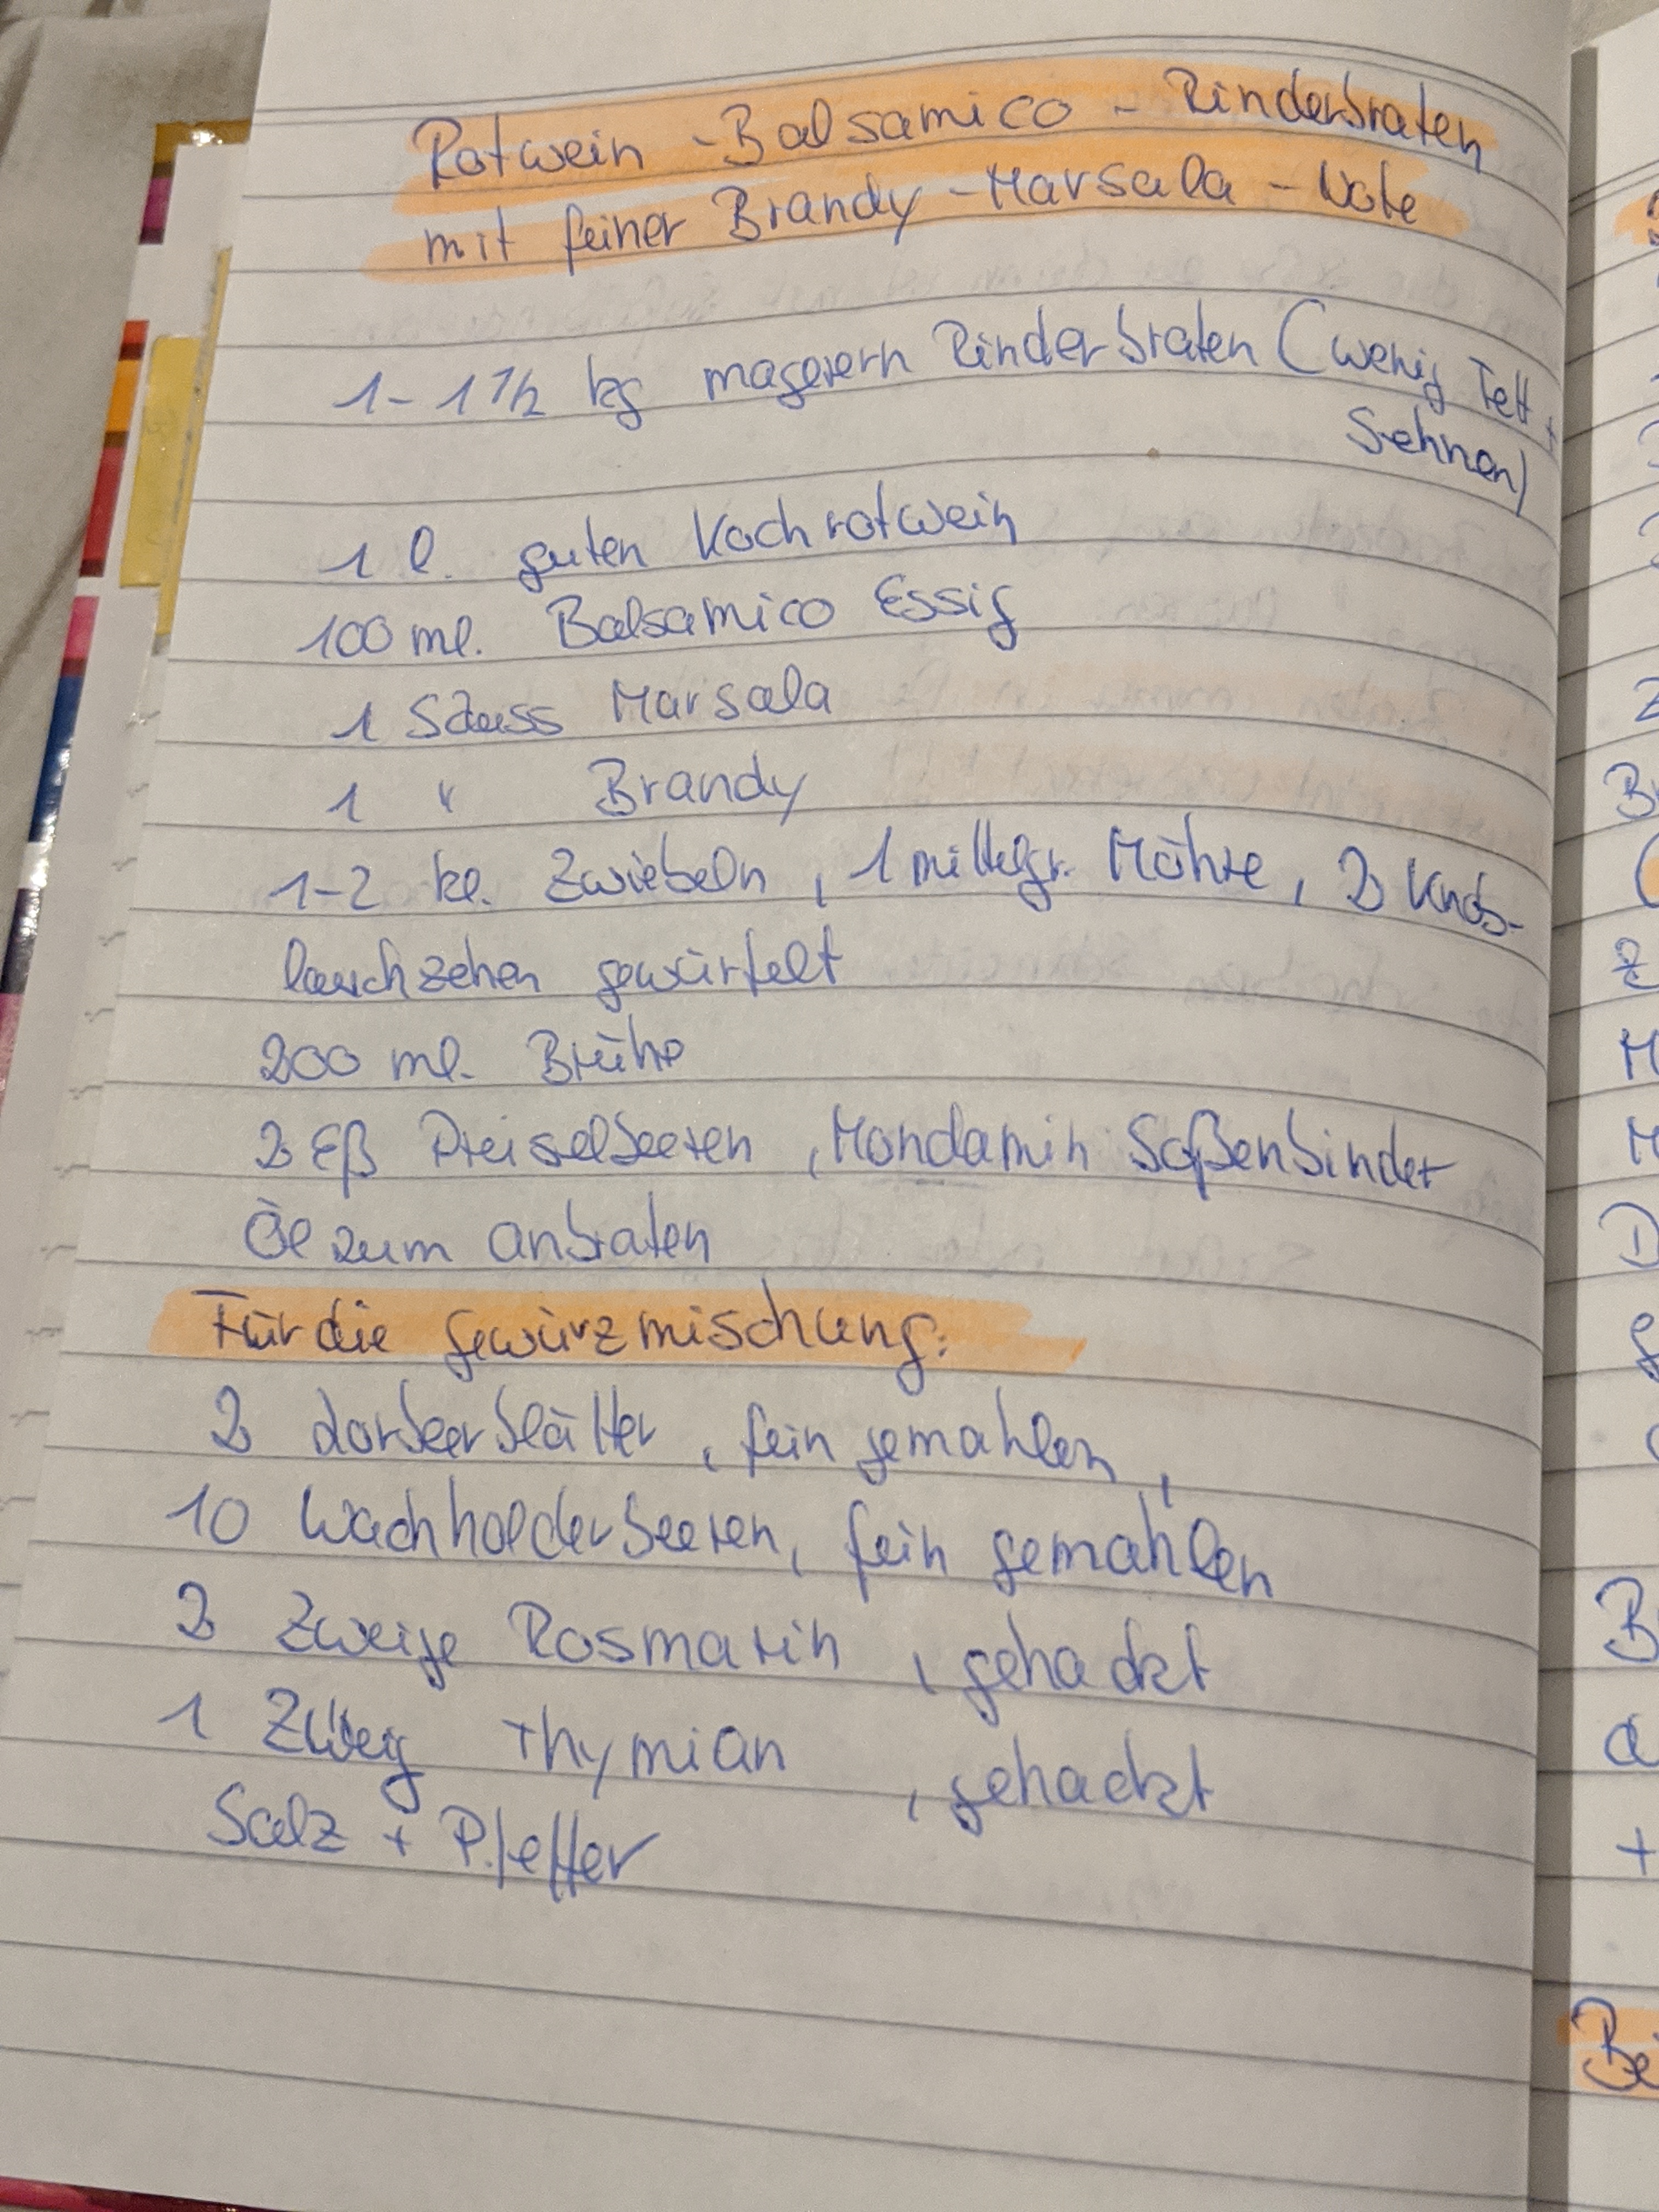 Rotwein - Balsamico - Rinderbraten
mit feiner Brandy - Marsala - Note
1 - 1 1/2 kg magerern Rinderbraten (wenig Fett +
Sehnen)
1 l. guten Kochrotwein
100 ml. Balsamico Essig
1 Schuss Marsala
1 " Brandy
1-2 kl. Zwiebeln, 1 mittelgr. Möhre, 2 Knob-
lauchzehen gewürfelt
200 ml. Brühe
2 Eß Preiselbeeren, Mondamin Soßenbinder
Öl zum anbraten
Für die Gewürzmischung:
2 Lorbeerblätter, fein gemahlen,
10 Wachholderbeeren, fein gemahlen
2 Zweige Rosmarin, gehackt
1 Zweig Thymian, gehackt
Salz + Pfeffer